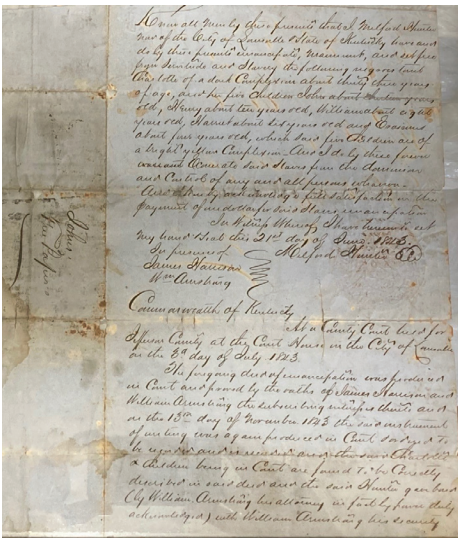 Know all Men by these presents that I Milford Hunter
now of the City of Louisville & State of Kentucky have and
do by these presents emancipate, manumit, and set free
from Servitude and Slavery the following negroes (to wit
Charlotte of a dark Complexion about thirty three years
of age, and her five Children John about years
old, Henry about ten years old, William about eight
years old, Harriet about six years old and
about four years old, which said five Children are of
a bright yellow Complexion. And I do by these
said Slaves from the dominion
and Control of any and all persons whatever
And I hereby satisfaction in the
payment of said Slaves emancipation
In Witness Whereof I have hereunto set
my hand & Seal this 21st day of June 1843
In presence of Milford Hunter
James Harrison
Wm Armstrong
Commonwealth of Kentucky
At a County Court held for
Jefferson County at the Court House in the City of Louisville
on the 3d day of July 1843
The foregoing deed of emancipation was produced
in Court and proved by the oaths of James Harrison and
William Armstrong the subscribing witnesses thereto and
on the 13th day of November 1843 the said instrument
of writing was again produced in Court
and the said Charlotte
& Children being in Court are found to be Correctly
described in said deed and the said Hunter gave bond
(by William Armstrong his attorney in fact
acknowledged) with William Armstrong his security
John
Free Papers